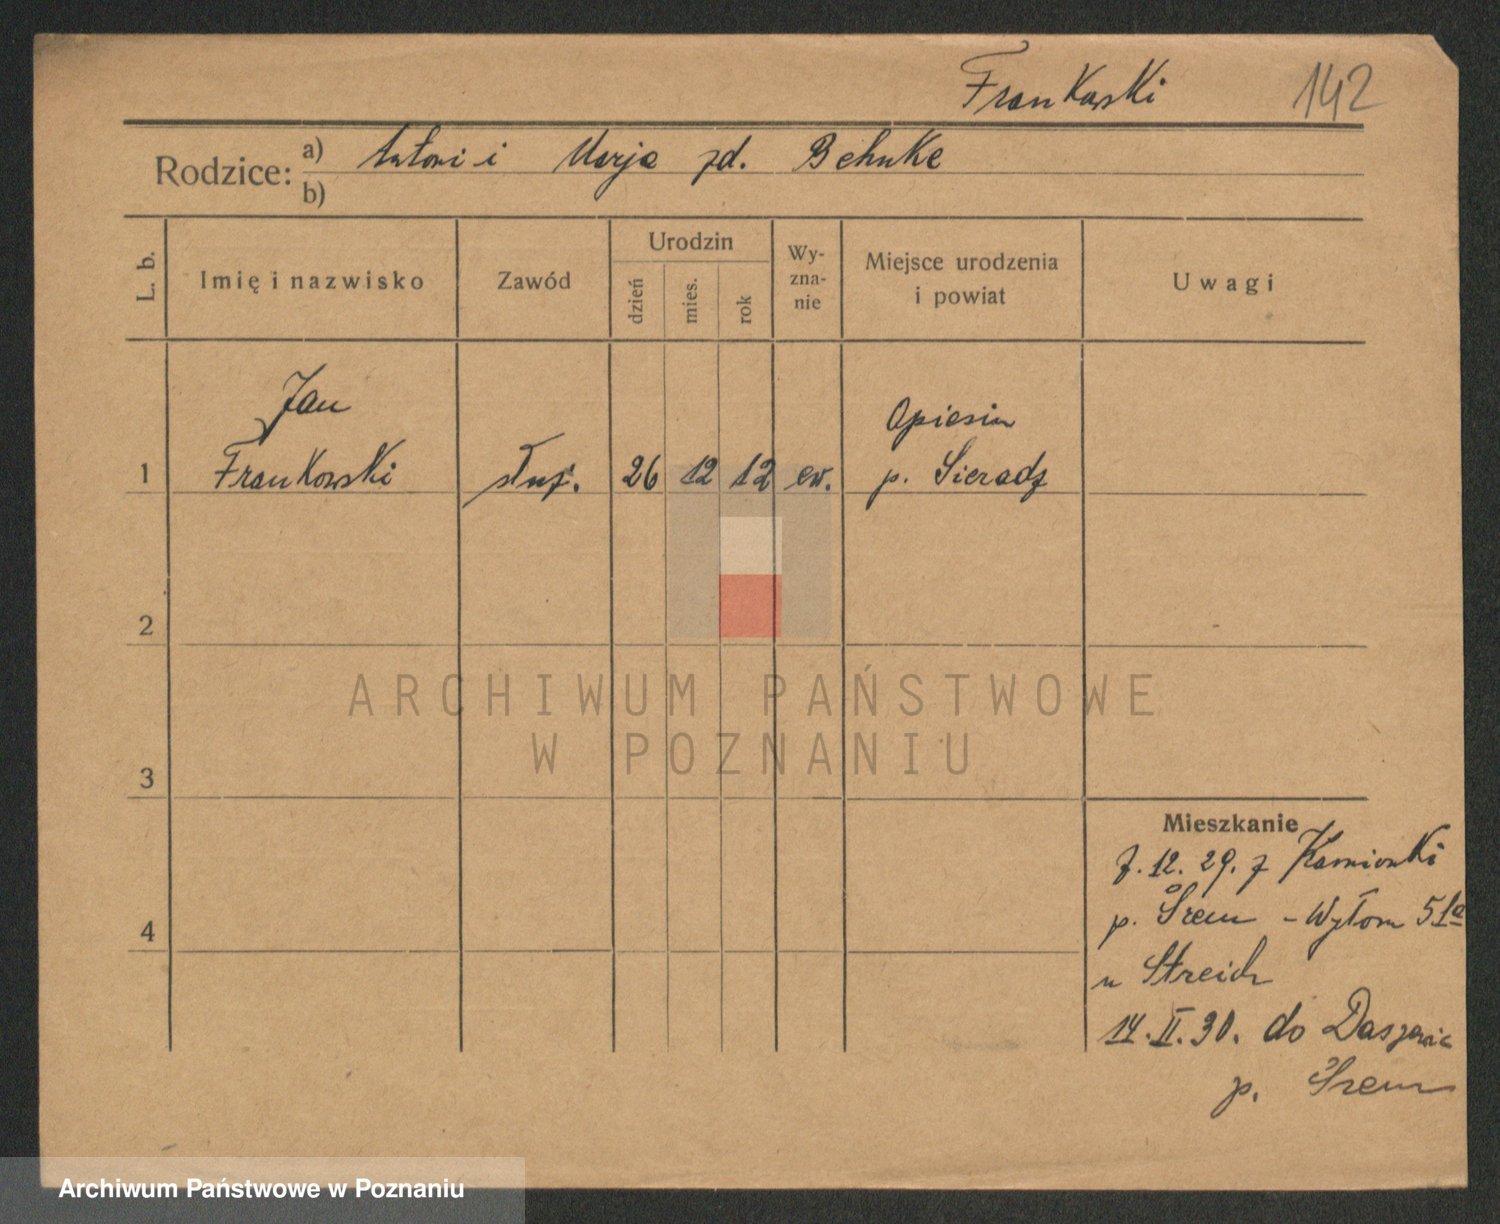 Frankowski 142
Rodzice: a) Antoni i Marja zd. Behnke
b)
L. b. Imię i nazwisko Zawód Urodzin dzień mies. rok Wy-zna-nie Miejsce urodzenia i powiat Uwagi
Jan Opiesin
1 Frankowski służ. 26 12 12 ew. p. Sieradz
2
ARCHIWUM PAŃSTWOWE
W POZNANIU
3
Mieszkanie
7.12.29. z Kamionki
p. Śrem - Wyłom 51a
4
u Streich
14.II.30. do
p. Śrem
Archiwum Państwowe w Poznaniu